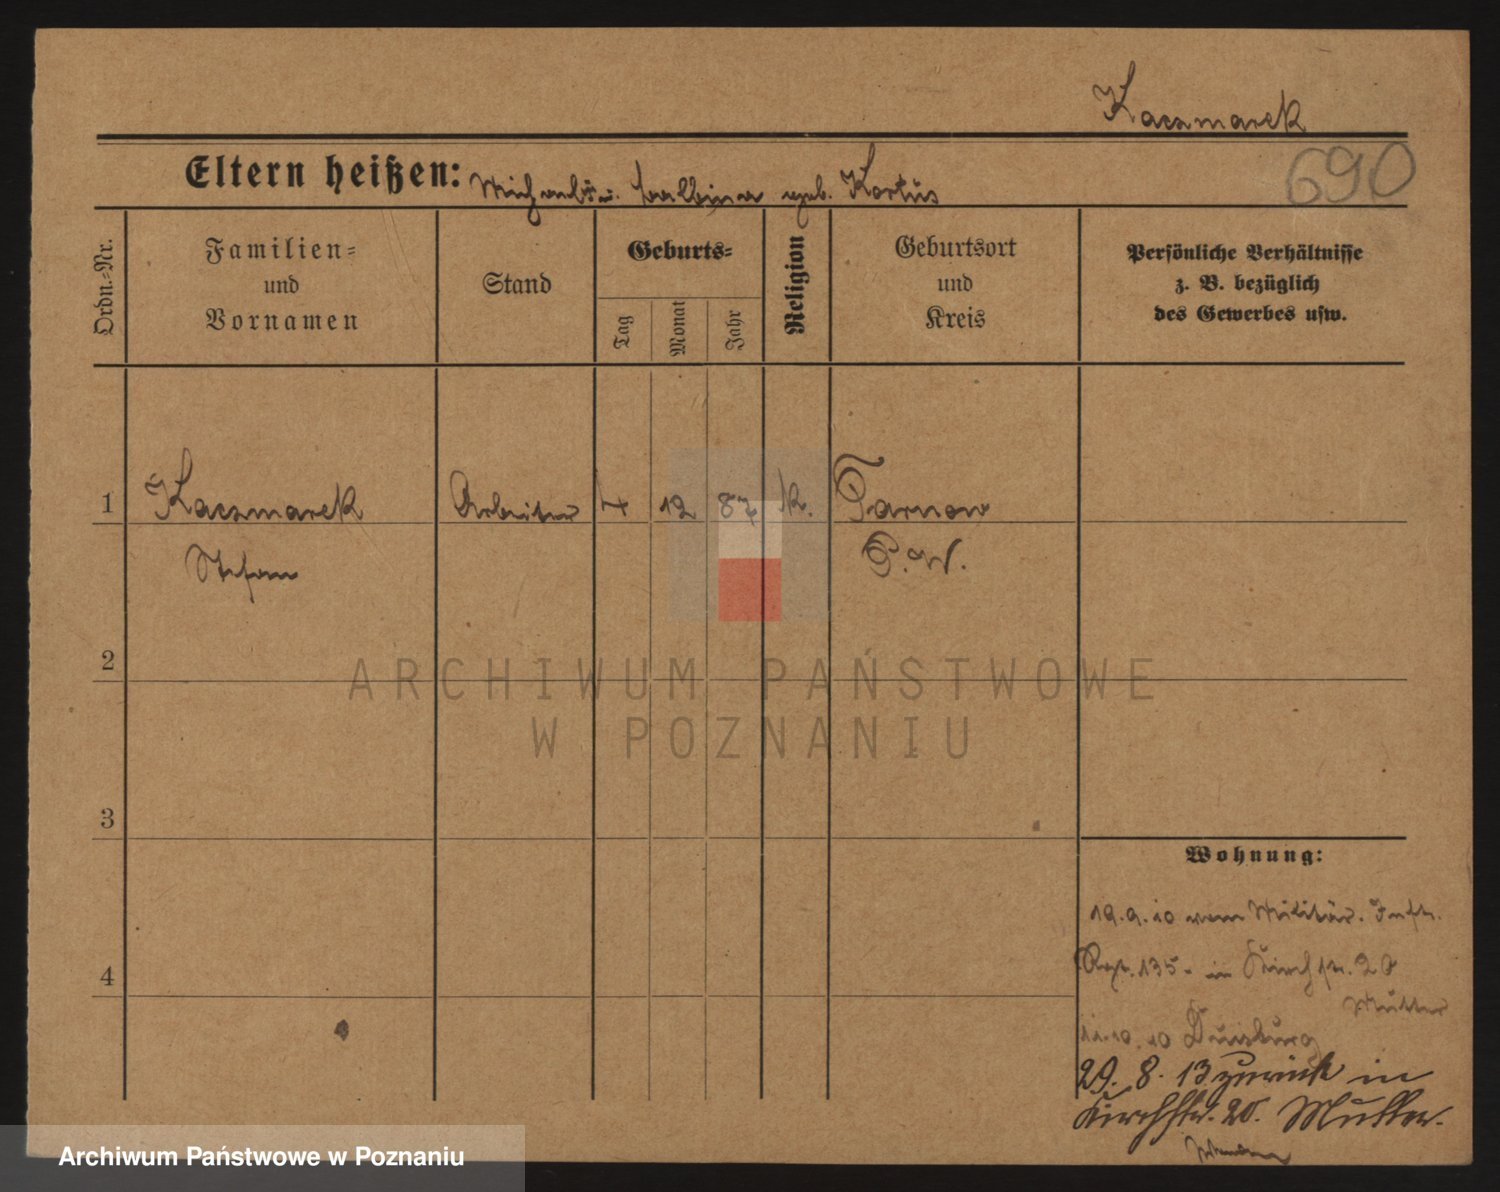 Kaczmarek
690
Eltern heißen: Michael u. Balbina geb. Kortus
Ordn.-Nr.
Familien- und Vornamen
Stand
Geburts-
Tag
Monat
Jahr
Religion
Geburtsort und Kreis
Persönliche Verhältnisse
z. B. bezüglich
des Gewerbes usw.
1 Kaczmarek Arbeiter 7 12 87 k. Tarnow
Stefan P. W.
2
3
4
Wohnung:
19.9.10 vom Militär. Inftr.
Regt. 135. in Kirchstr. 20
Mutter
11.10.10 Duisburg
29. 8. 13 zurück in
Kirchstr. 20. Mutter.
ARCHIWUM PAŃSTWOWE
W POZNANIU
Archiwum Państwowe w Poznaniu